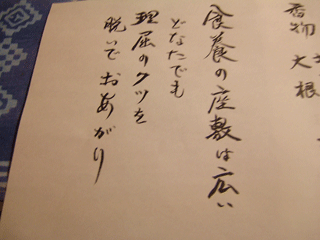 香物 大根
食養の座敷は広い
どなたでも
理屈のクツを
脱いでおあがり